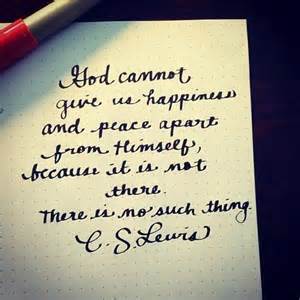 God cannot
give us happiness
and peace apart
from Himself,
because it is not
there.
There is no such thing.
C. S. Lewis